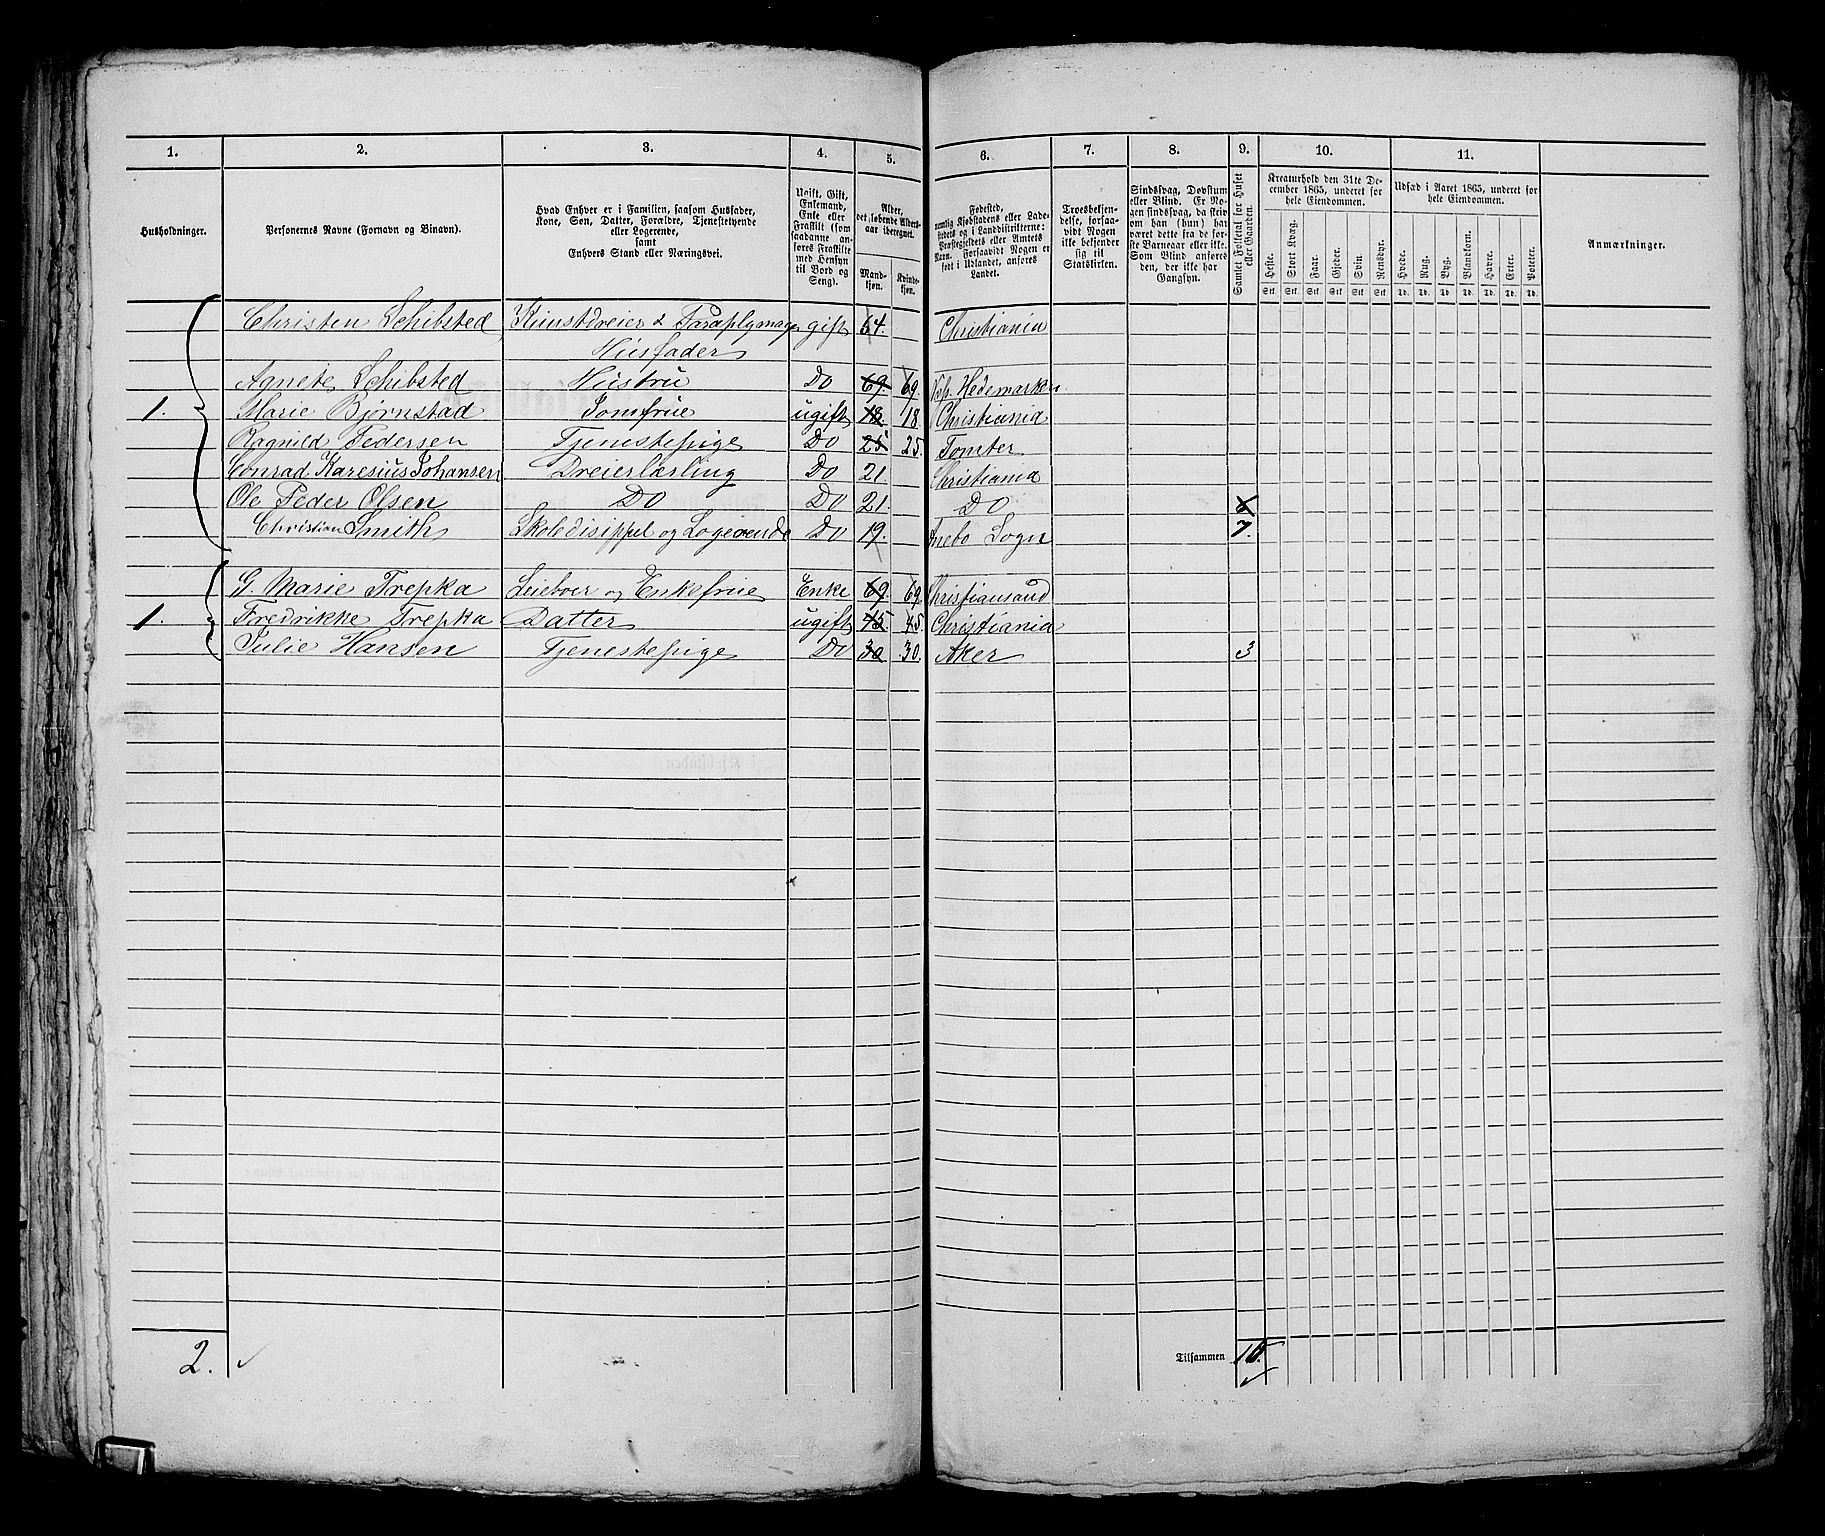 1. 2. 3. 4. 5. 6. 7. 8. 9. 10. 11.
Husholdninger.
Personernes Navne (Fornavn og Binavn).
Hvad Enhver er i Familien, saasom Husfader,
Kone, Søn, Datter, Forældre, Tjenestetyende
eller Logerende,
samt
Enhvers Stand eller Næringsvei.
Ugift, Gift,
Enkemand,
Enke eller
Fraskilt (som
saadanne an-
føres Fraskilte
med Hensyn
til Bord og
Seng).
Alder,
det løbende Alders-
aar iberegnet.
Mand-
kjøn.
Kvinde-
kjøn.
Fødested,
nemlig Kjøbstadens eller Lade-
stedets og i Landdistrikterne:
Præstegjeldets eller Amtets
Navn. Forsaavidt Nogen er
født i Udlandet, anføres
Landet.
Troesbekjen-
delse, forsaa-
vidt Nogen
ikke bekjender
sig til
Statskirken.
Sindssvag, Døvstum
eller Blind. Er No-
gen sindssvag, da skriv
om han (hun) har
været dette fra de før-
ste Barneaar eller ikke.
Som Blind anføres
den, der ikke har
Gangsyn.
Samlet Folketal for Huset
eller Gaarden.
Kreaturhold den 31te De-
cember 1865, underet for
hele Eiendommen.
Heste. Stort Kvæg. Faar. Gjeder. Svin. Rensdyr.
Stk. Stk. Stk. Stk. Stk. Stk.
Udsæd i Aaret 1865, underet for
hele Eiendommen.
Hvede. Rug. Byg. Blandkorn. Havre. Erter. Poteter.
Td. Td. Td. Td. Td. Td. Td.
Anmærkninger.
Christen Schibsted Kunstdreier & Paraplymager gift 64. Christiania
Husfader
Agnete Schibsted Hustru Do 69 69. Hedemarken
1. Marie Bjørnstad Jomfrue ugift 18 18. Christiania
Ragnild Pedersen Tjenestepige Do 25 25. Tomter
Conrad Karesius Johansen Dreierlærling Do 21. Christiania
Ole Peder Olsen Do Do 21. Do
Christian Smith Skoledisippel og Logerende Do 19. Anebo Sogn 7.
G. Marie Trepka Leieboer og Enkefrue Enke 69 69 Christiansand
1. Fredrikke Trepka Datter ugift 45 45. Christiania
Julie Hansen Tjenestepige Do 30 30. Aker 3
2. Tilsammen 10.